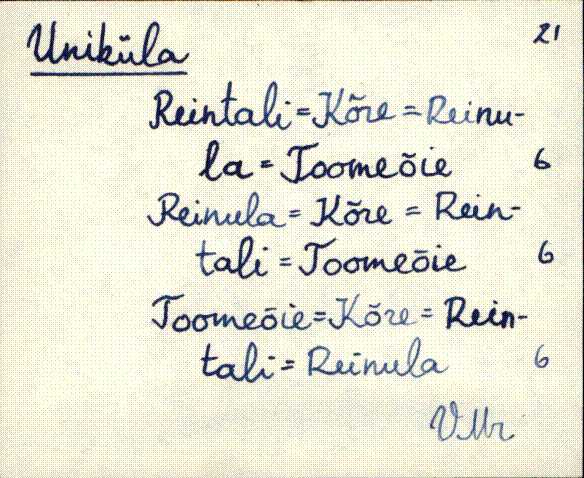 Uniküla 21
Reintali = Kõre = Reinu-
la = Toomeõie 6
Reinula = Kõre = Rein-
tali = Toomeõie 6
Toomeõie = Kõre = Rein-
tali = Reinula 6